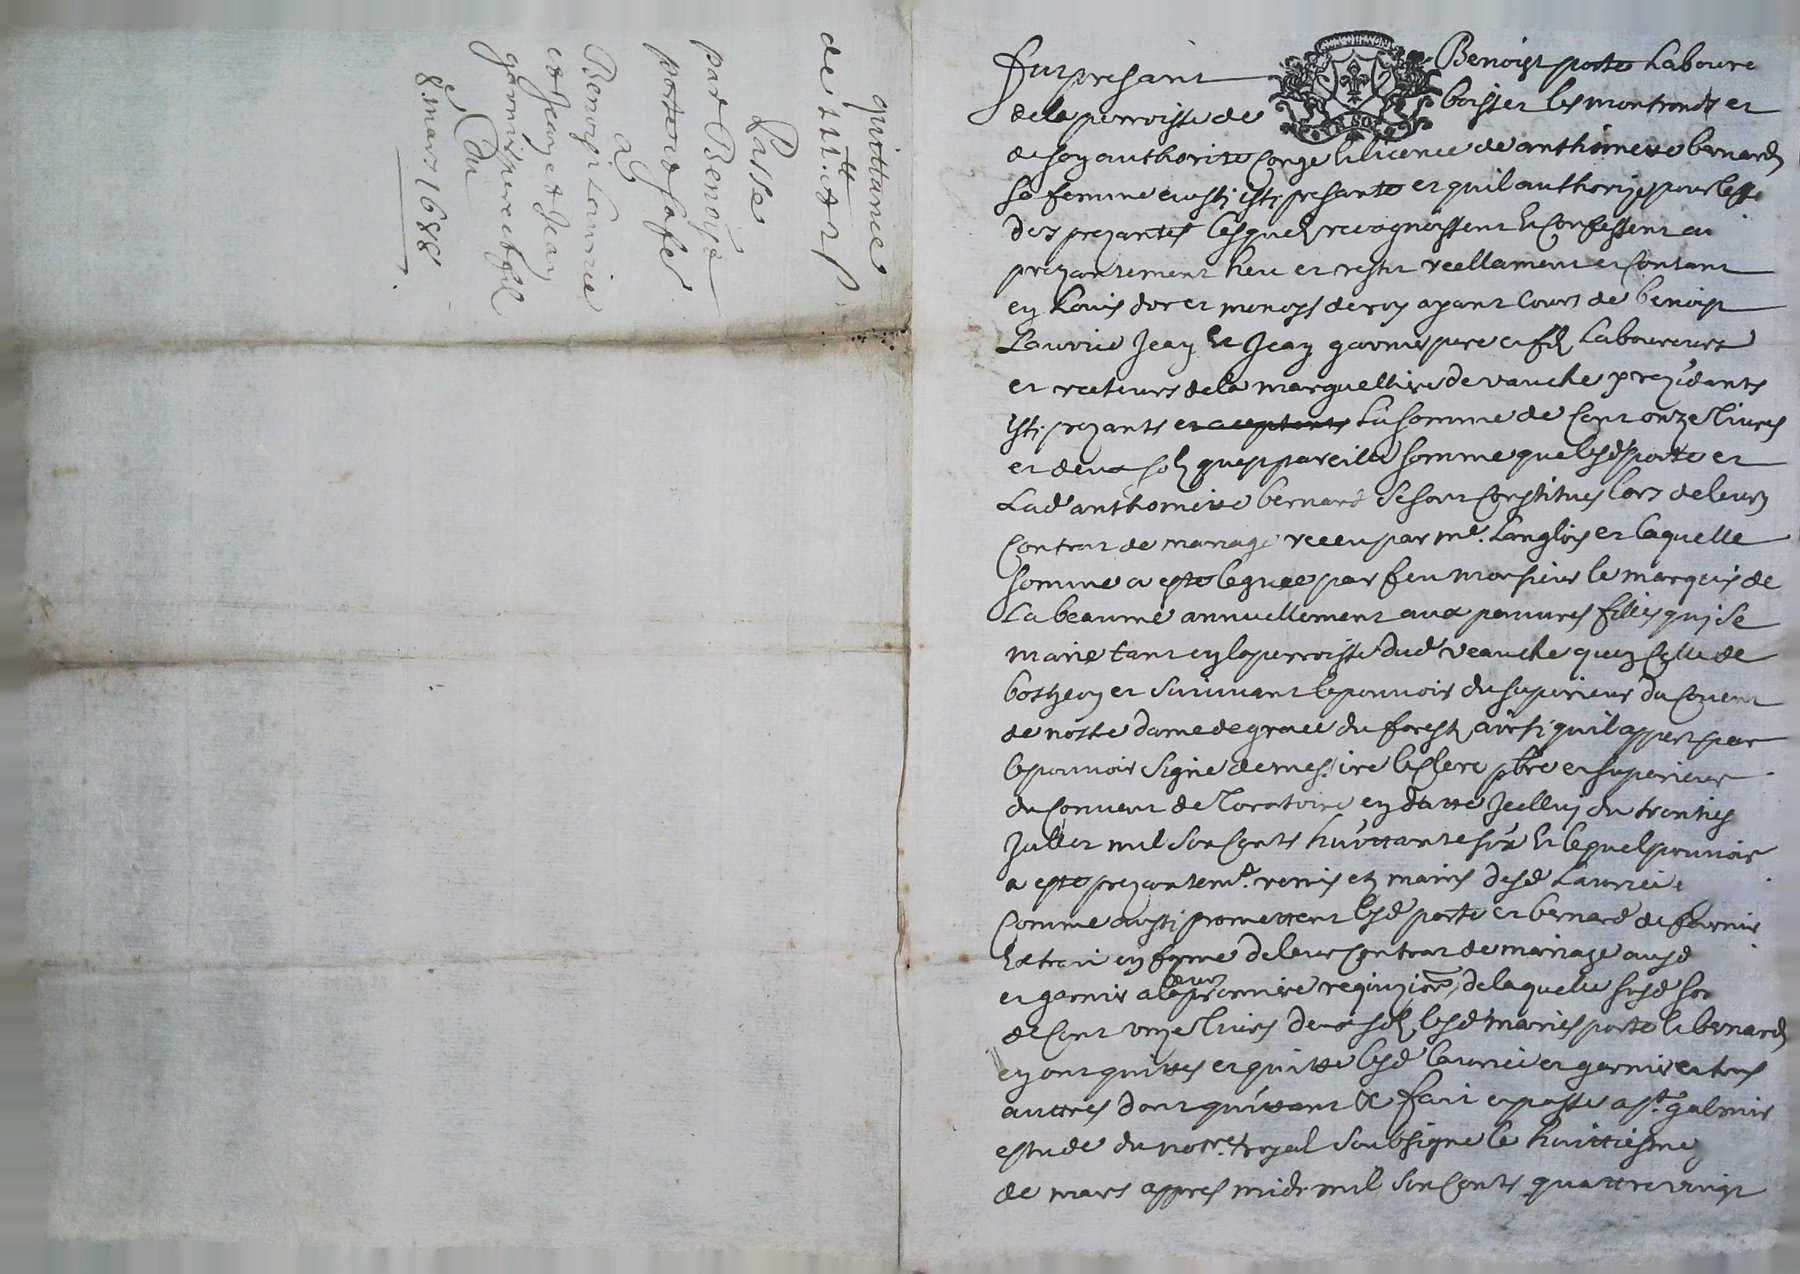 quittance
de 111 lt 2 s
Passe
par Benoist
porte et sa fe
a
Benoyt Laurrie
et Jean et Jean
garnier pere et fil
Du
8e mars 1688
fut presant Benoist porte laboure
de la perroisse de boisset les montrondz et
de son authorite conge et licence de anthoinette bernard
sa femme aussi isti presante et quil authorize pour leffe
des prezantes lesquelz recognoissent et confessent avoi
prezantement heu et resut reellament et contant
en Louis dor et monoys de roy ayant cours de benoist
Laurrie Jean et Jean garnier pere et filz laboureurs
et recteurs de la marguelliere de vauche prezidants
isti prezants et aceptants la somme de cent onze livres
et deux solz quest pareille somme que lesd porte et
Lad anthoinette bernard se sont constitues lors de leur
contrat de mariage receu par me. Langlois et laquelle
somme a este leguee par feu monsieur le marquis de
La beaume annuellement aux pauvres filles qui se
marie tant en la perroisse dud veauche quen celle de
bostzeon et suivvant le pouvoir du superieur du couvent
de nostre dame de grace du forestz ainsi quil appert par
le pouvoir signe de messire leclerc pbre et superieur
du couvent de loratoire en datte icelluy du trentie
Jullet mil six cents huittante six et lequel pouvoir
a este prezantemt. remis ez mains desd Laurrie
comme aussi promettent lesd porte et bernard de fournir
Extrai en forme de leur contrat de mariage ausd
et garnier a leur premiere requizion, de laquelle susd so
de cent unze livres deux solz lesd maries porte et bernard
en ont quittes et quitte lesd laurrie et garnier et tous
auttres dont quittant &c fait et passe a st. galmier
estude du notre. royal soubsigne le huittiesme
de mars appres midi mil six cents quattre vingt